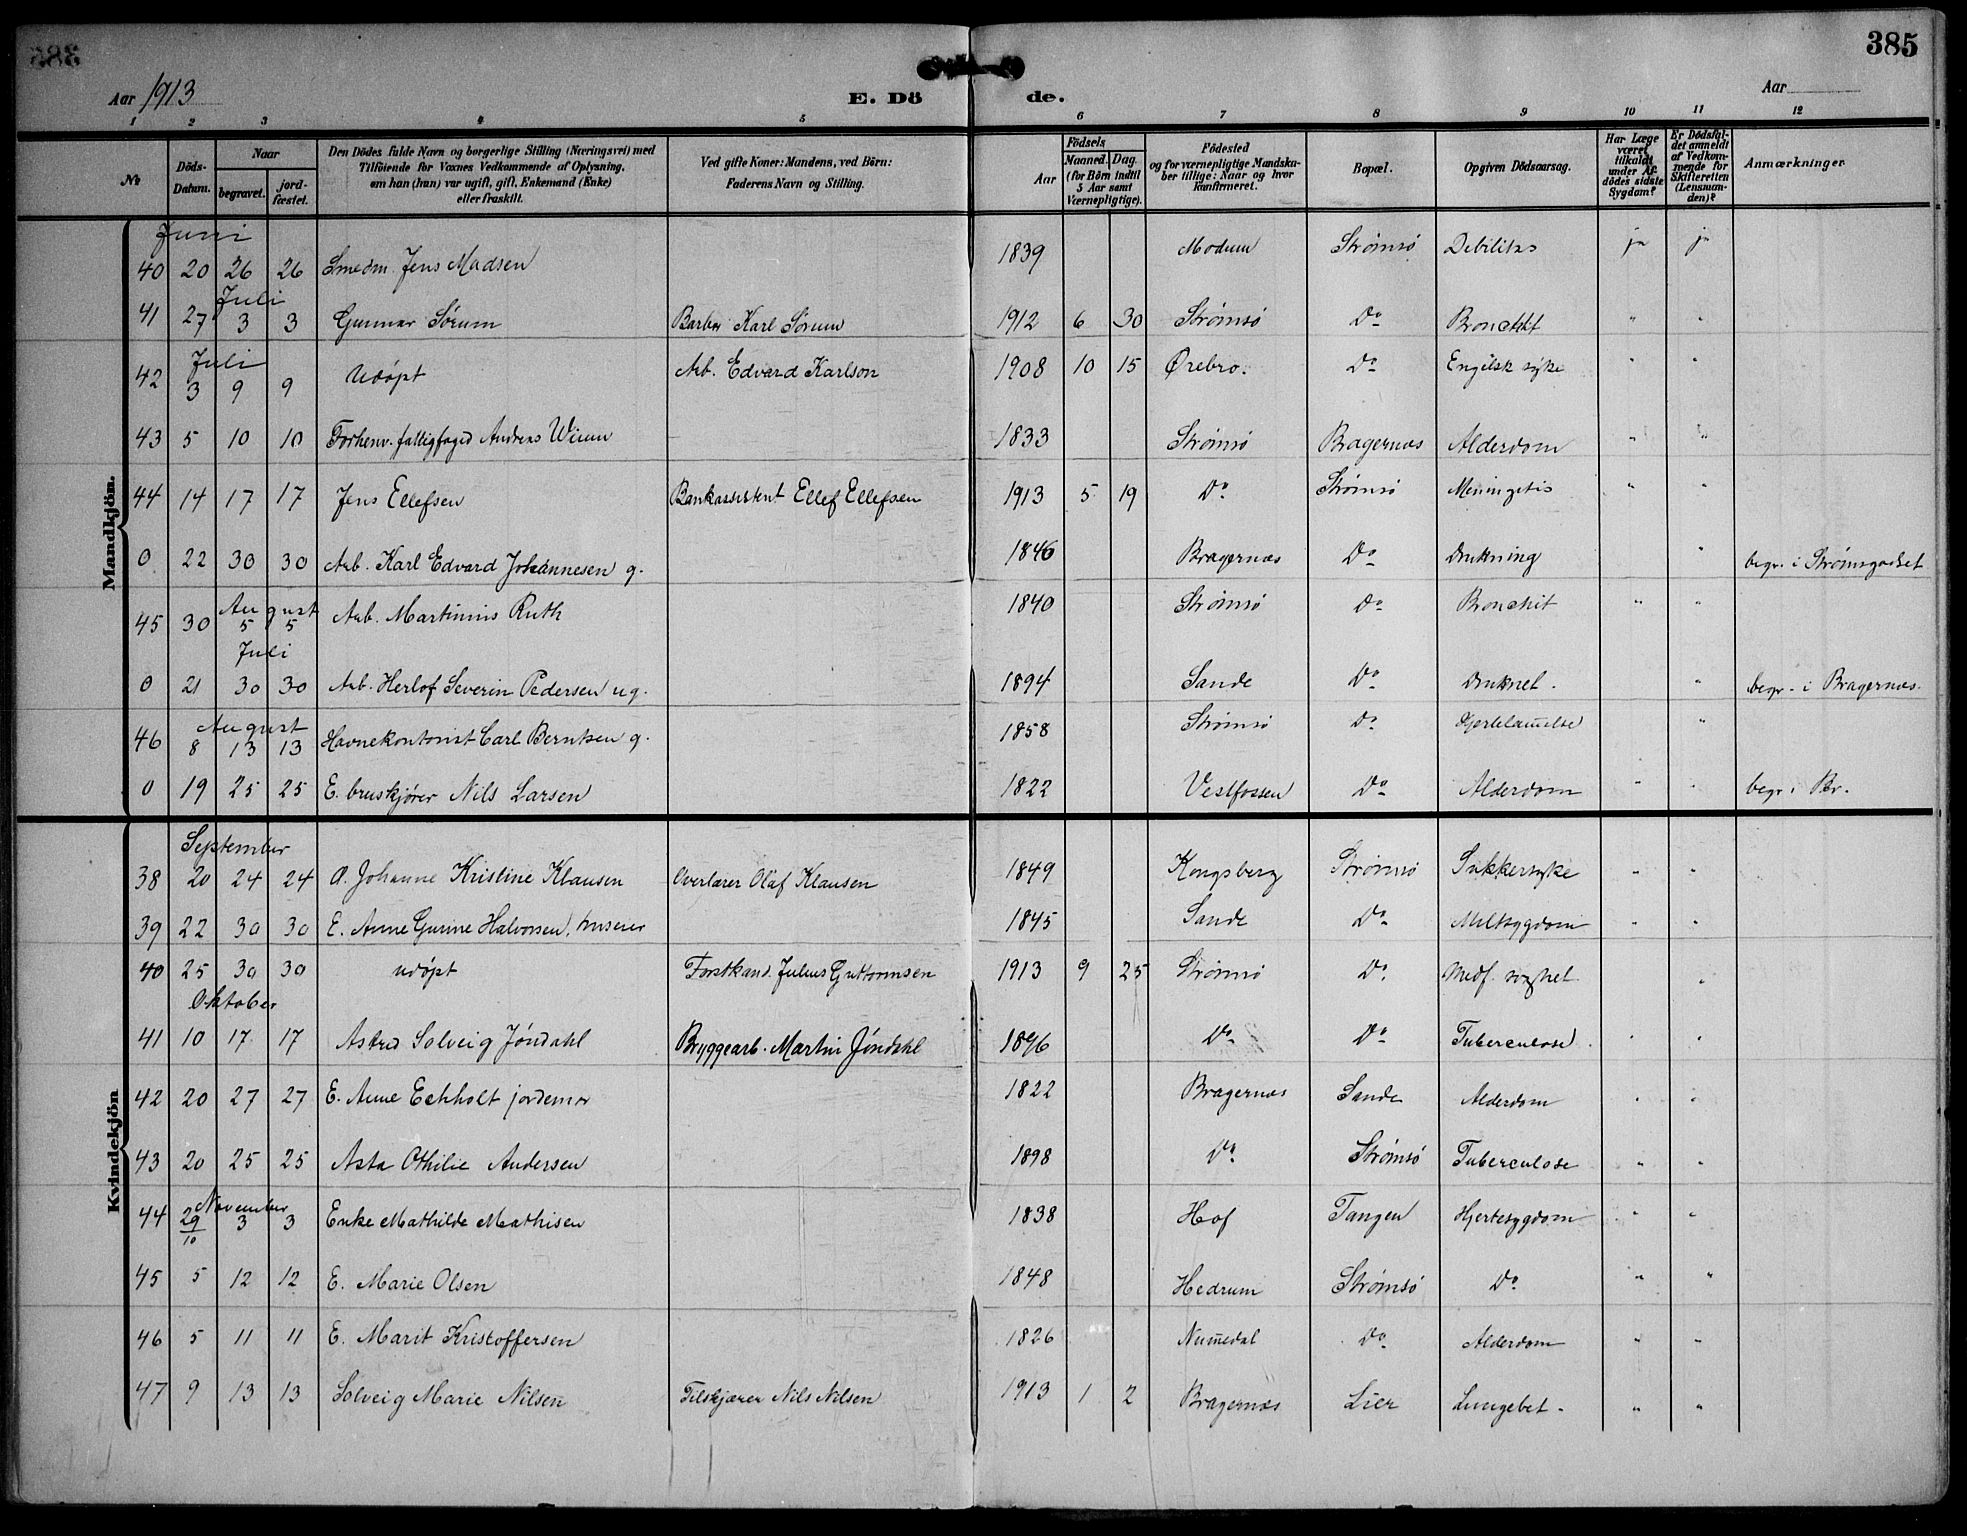 385
Aar 1913
E. Döde.
Aar
1 2 3 4 5 6 7 8 9 10 11 12
No
Döds-Datum.
Naar
begravet.
jordfæstet.
Den Dödes fulde Navn og borgerlige Stilling (Næringsvei) med Tilföiende for Voxnes Vedkommende af Oplysning, om han (hun) var ugift, gift, Enkemand (Enke) eller fraskilt.
Ved gifte Koner: Mandens, ved Börn: Faderens Navn og Stilling.
Födsels
Aar
Maaned. Dag.
(for Börn indtil 5 Aar samt Værnepligtige).
Födested og for værnepligtige Mandskaber tillige: Naar og hvor konfirmeret.
Bopæl.
Opgiven Dödsaarsag.
Har Læge været tilkaldt under Afdödes sidste Sygdom?
Er Dödsfaldet anmeldt af Vedkommende for Skifteretten (Lensmanden)?
Anmærkninger
Mandkjön.
Juni
40 20 26 26 Smedm. Jens Madsen 1839 Modum Strømsö Debilitas ja ja
Juli
41 27 3 3 Gunnar Sörum Barber Karl Sörum 1912 6 30 Strømsö Do Bronchit " "
Juli
42 3 9 9 Udöpt Arb. Edvard Karlson 1908 10 15 Ørebro. Do Engelsk syke " "
43 5 10 10 Forhenv. fattigfoged Andreas Wium 1833 Strømsö Bragernæs Alderdom " "
44 14 17 17 Jens Ellefsen Bankassistent Ellef Ellefsen 1913 5 19 Do Strømsö Meningitis " "
0 22 30 30 Arb. Karl Edvard Johannesen g. 1846 Bragernæs Do Drukning " begr. i Strømsgodset
August
45 30 5 5 Arb. Martinius Ruth 1840 Strømsö Do Bronchit " "
Juli
0 21 30 30 Arb. Herlof Severin Pedersen ug. 1894 Sande Do Druknet. " begr. i Bragernæs.
August
46 8 13 13 Havnekontorist Carl Berntsen g. 1858 Strømsö Do Hjertelam̄else "
0 19 25 25 E. bruskjører Nils Larsen 1822 Vestfossen Do Alderdom " " begr. i Br.
Kvindekjön
September
38 20 24 24 G. Johanne Kristine Klausen Overlærer Olaf Klausen 1849 Kongsberg Strømsö Sukkersyke " "
39 22 30 30 E. Anne Gurine Halvorsen, huseier 1845 Sande Do Miltsygdom " "
40 25 30 30 udöpt Forstkand. Julius Guttormsen 1913 9 25 Strømsö Do Medf. svaghet "
Oktober
41 10 17 17 Astrid Solveig Jöndahl Bryggearb. Martin Jöndahl 1896 Do Do Tuberculose. " "
42 20 27 27 E. Anne Echholt jordemor 1822 Bragernæs Sande Alderdom " "
43 20 25 25 Asta Othilie Andersen 1898 Do Strømsö Tuberculose " "
November
44 29/10 3 3 Enke Mathilde Mathisen 1838 Hof Tangen Hjertesygdom " "
45 5 12 12 E. Marie Olsen 1848 Hedrum Strømsö Do " "
46 5 11 11 E. Marit Kristoffersen 1826 Num̄edal Do Alderdom " "
47 9 13 13 Solveig Marie Nilsen Filskjærer Nils Nilsen 1913 1 2 Bragernæs Lier Lungebet. " "